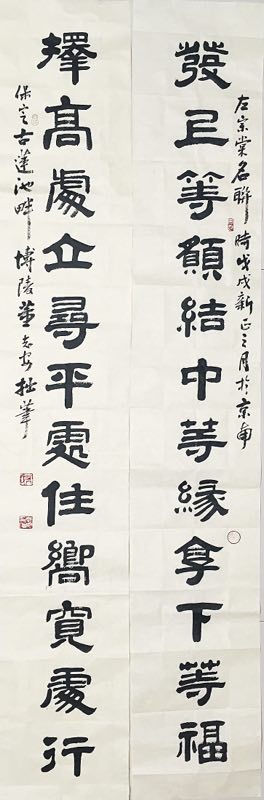 發上等願結中等緣享下等福
左宗棠名聯時戊戌新正之月於京南
擇高處立尋平處住嚮寬處行
保定古蓮池畔博陵董拙筆